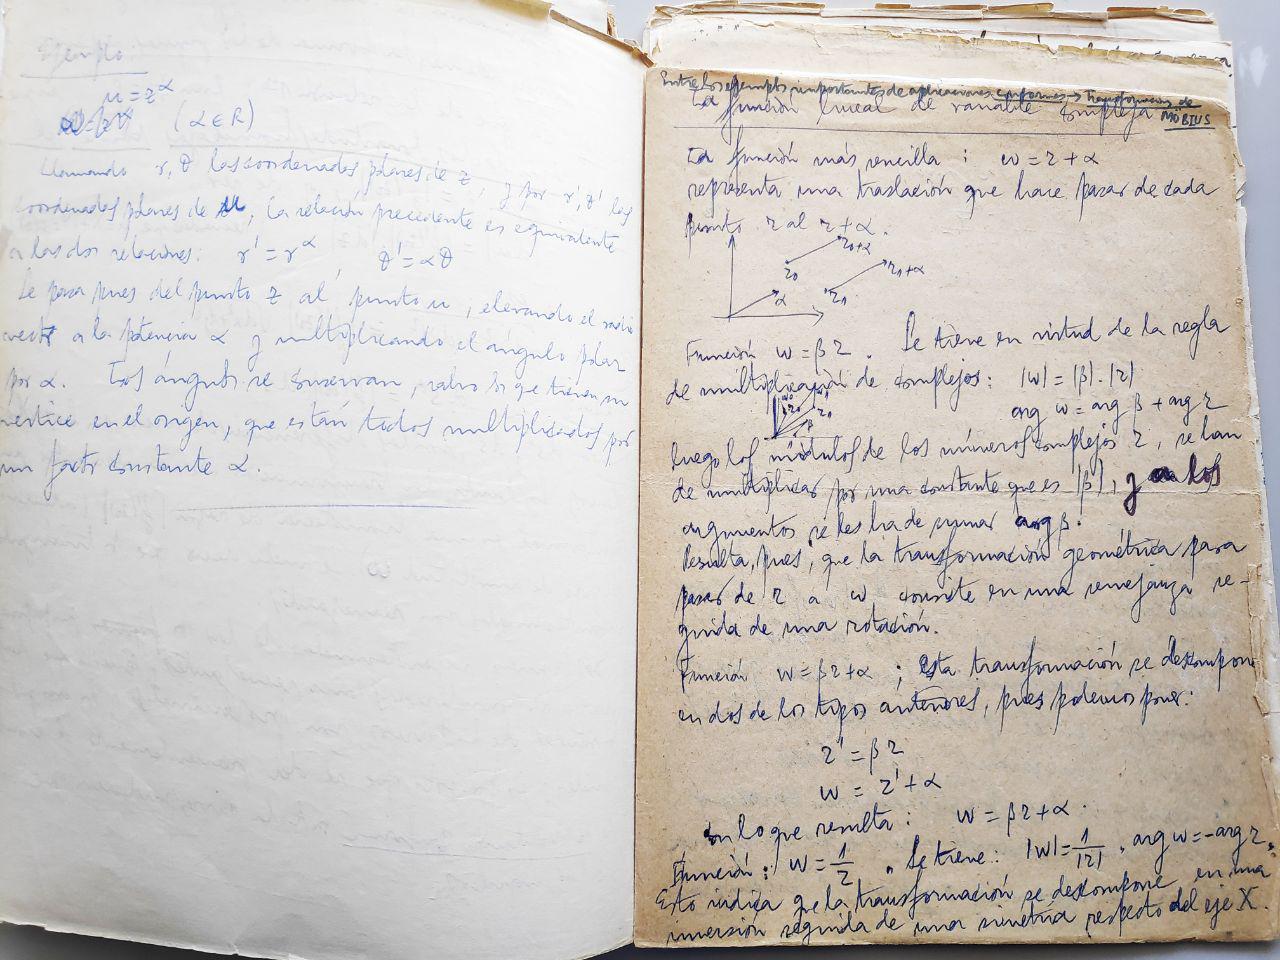 Ejemplo
u = z^α
(α ∈ R)
Llamando r, θ las coordenadas polares de z, y por r', θ' las
coordenadas polares de u, la relación precedente es equivalente
a las dos relaciones: r' = r^α θ' = αθ
Se pasa pues del punto z al punto u, elevando el radio
vector a la potencia α y multiplicando el ángulo polar
por α. Los ángulos se conservan, salvo si que tienen su
vértice en el origen, que están todos multiplicados por
un factor constante α.
Entre los ejemplos importantes de aplicaciones conformes → Transformación de
MÖBIUS
La función lineal de variable compleja
La función más sencilla: w = z + α
representa una traslación que hace pasar de cada
punto z al z + α.
z₀+α
z₀
z₁+α
α
z₁
Función w = βz. Se tiene en virtud de la regla
de multiplicación de complejos: |w| = |β|·|z|
arg w = arg β + arg z
luego los módulos de los números complejos z, se han
de multiplicar por una constante que es |β|, y a los
argumentos se les ha de sumar arg β.
Resulta, pues, que la transformación geométrica para
pasar de z a w consiste en una semejanza se-
guida de una rotación.
Función w = βz + α; Esta transformación se descompone
en dos de los tipos anteriores, pues podemos poner:
z' = βz
w = z' + α
con lo que resulta: w = βz + α.
Función: w = 1/z. Se tiene: |w| = 1/|z|, arg w = -arg z.
Esto indica que la transformación se descompone en una
inversión seguida de una simetría respecto del eje X.